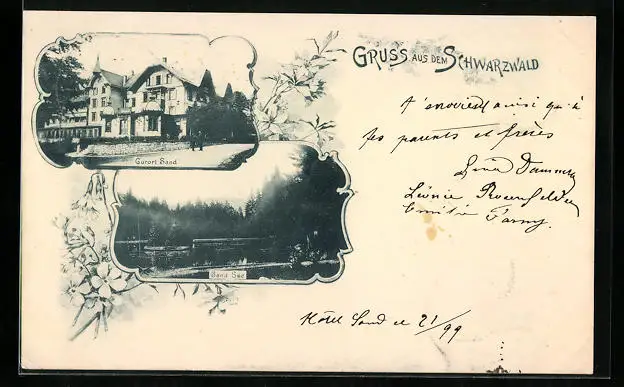 GRUSS AUS DEM SCHWARZWALD
Kurort Sand
Sand See
t'envoient ainsi qu'à
tes parents et frères
Léonie Rosenfelder
Emilie
Hôtel Sand 21/99